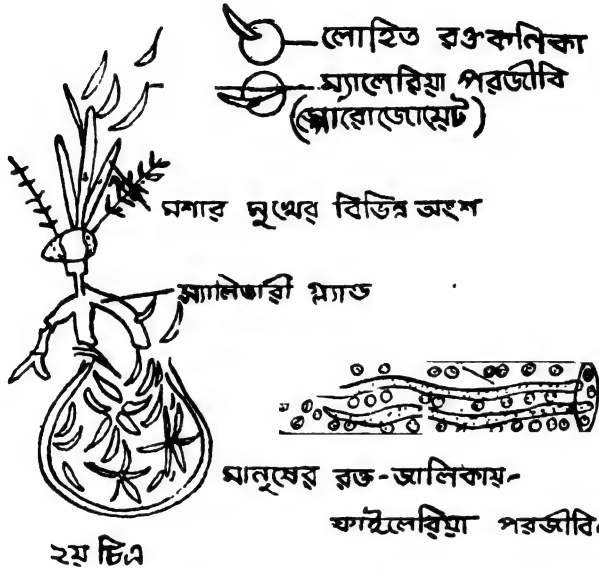 লোহিত রক্তকনিকা
ম্যালেরিয়া পরজীবি
(স্পোরোজোয়েট)
মশার মুখের বিভিন্ন অংশ
স্যালিভারী গ্ল্যান্ড
মানুষের রক্ত-জালিকায়-
ফাইলেরিয়া পরজীবি.
২য় চিত্র